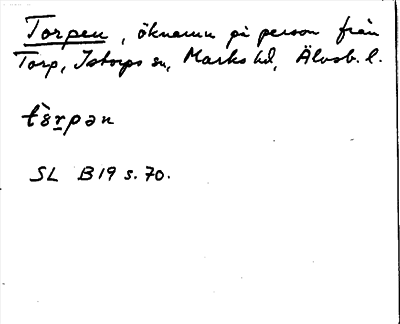 Torpen, öknamn på person från
Torp, Istorps sn, Marks hd, Älvsb. l.
tɤ̀r̠pən
SL B19 s. 70.